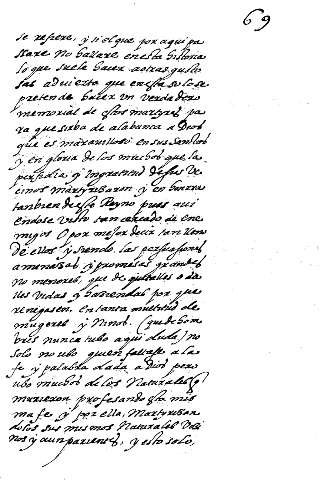 69
se refiere, y si el que por aqui pa
sare no hallare en esta historia
lo que suele haver a otras gusto
sas advierta que en esta solo se
pretende hacer un verdadero
memorial de estos martyres pa
ra que sirba de alabança a Dios
que es maravilloso en sus santos
y en gloria de los muchos que la
perfidia, y ingratitud de sus ve
cinos martyrisaron y en honrra
tanbien deste Reyno pues avi
endose visto tan cercado de ene
migos O por mejor decir tan lleno
de ellos y siendo las persuasiones
amenazas y promesas grandes
no menores, que de quitalles o da
lles vidas y haciendas por que
renegasen. En tanta multitud de
mugeres y Ninos. (que de hom
bres nunca tubo aqui duda) no
solo no ubo quien faltase a la
fe y palabra dada a Dios pero
ubo muchos de los Naturales q
murieron profesando esta mis
ma fe y por ella, Martyrisan
dolos sus mismos Naturales Veci
nos y aun parientes, y esto solo,